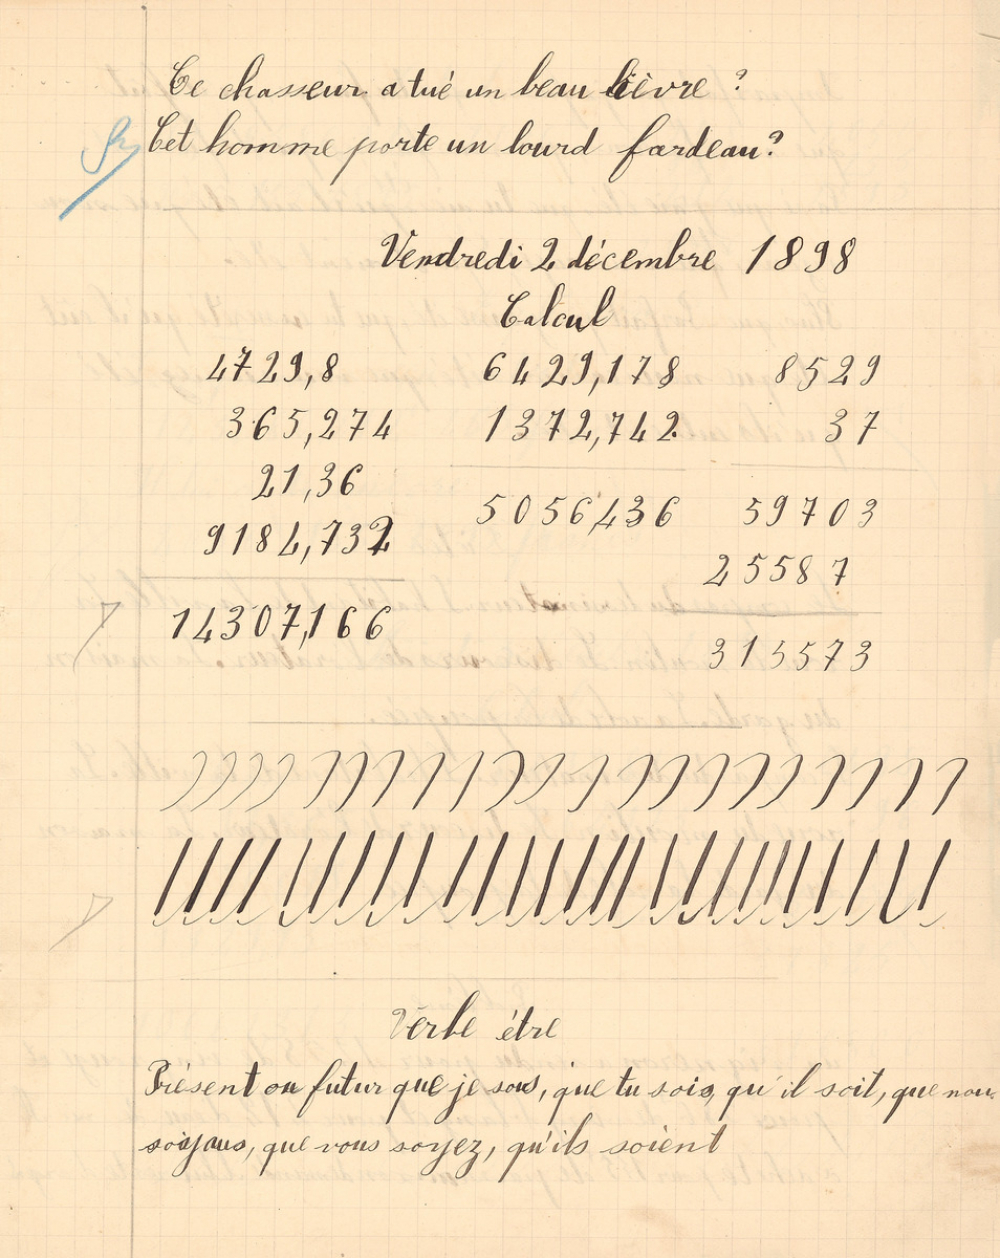 Ce chasseur a tué un beau lièvre?
Cet homme porte un lourd fardeau?
Vendredi 2 décembre 1898
Calcul
4729,8 6429,178 8529
365,274 1372,742 37
21,36
9184,732 5056,436 59703
25587
14307,166 315573
Verbe être
Présent ou futur que je sois, que tu sois, qu'il soit, que nous
soyons, que vous soyez, qu'ils soient